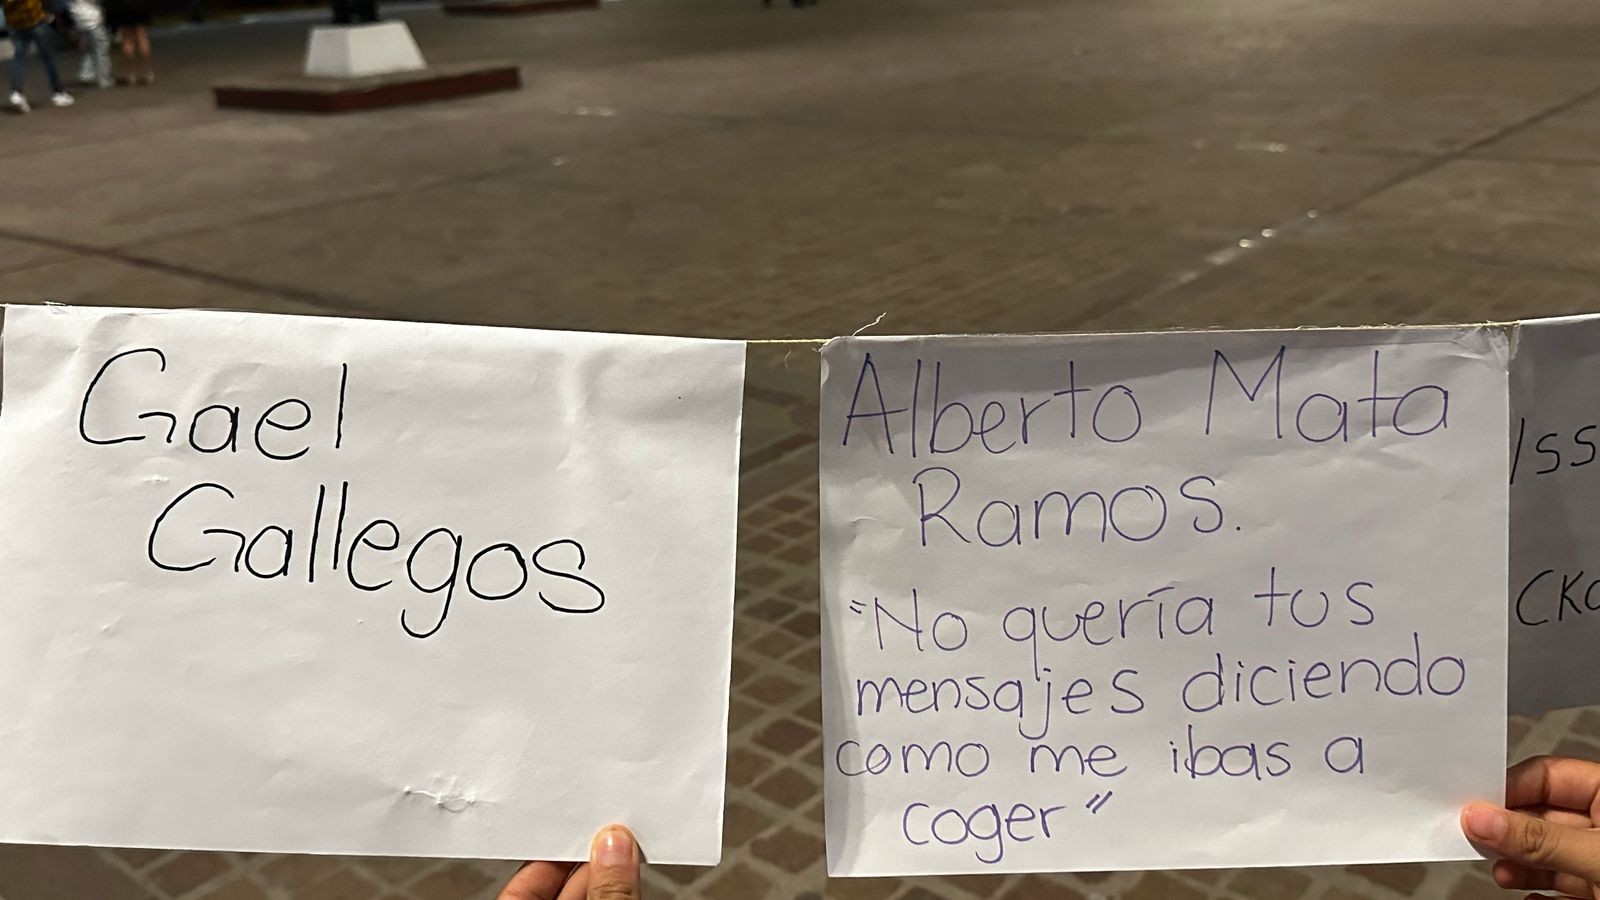 Gael
Gallegos
Alberto Mata
Ramos.
"No quería tus
mensajes diciendo
como me ibas a
coger"